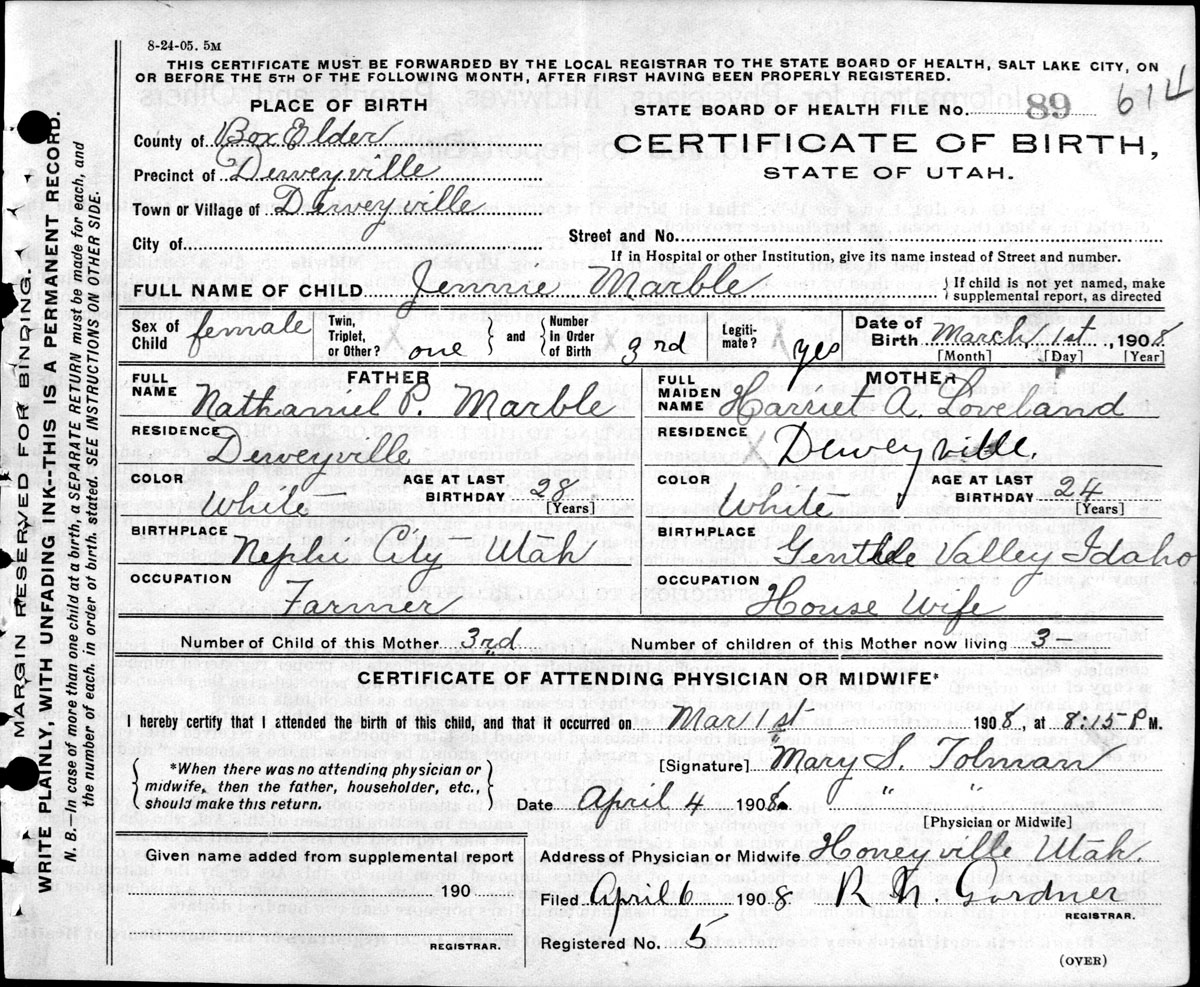 8-24-05. 5M
THIS CERTIFICATE MUST BE FORWARDED BY THE LOCAL REGISTRAR TO THE STATE BOARD OF HEALTH, SALT LAKE CITY, ON
OR BEFORE THE 5TH OF THE FOLLOWING MONTH, AFTER FIRST HAVING BEEN PROPERLY REGISTERED.
PLACE OF BIRTH
STATE BOARD OF HEALTH FILE NO. 89 614
County of Box Elder
CERTIFICATE OF BIRTH,
Precinct of Deweyville
STATE OF UTAH.
Town or Village of Deweyville
City of
Street and No.
If in Hospital or other Institution, give its name instead of Street and number.
FULL NAME OF CHILD Jennie Marble } If child is not yet named, make
supplemental report, as directed
Sex of Child female Twin, Triplet, or Other? one and Number In Order of Birth 3rd Legiti-mate? yes Date of Birth March 1st, 1908
[Month] [Day] [Year]
FATHER
FULL NAME Nathaniel P. Marble
RESIDENCE Deweyville
COLOR White AGE AT LAST BIRTHDAY 28 [Years]
BIRTHPLACE Nephi City Utah
OCCUPATION Farmer
MOTHER
FULL MAIDEN NAME Harriet A. Loveland
RESIDENCE Deweyville.
COLOR White AGE AT LAST BIRTHDAY 24 [Years]
BIRTHPLACE Gentile Valley Idaho
OCCUPATION House Wife
Number of Child of this Mother 3rd Number of children of this Mother now living 3
CERTIFICATE OF ATTENDING PHYSICIAN OR MIDWIFE*
I hereby certify that I attended the birth of this child, and that it occurred on Mar 1st 1908, at 8:15 P M.
*When there was no attending physician or
midwife, then the father, householder, etc.,
should make this return.
[Signature] Mary S. Tolman
Date April 4 1908. " "
[Physician or Midwife]
Given name added from supplemental report
190
REGISTRAR.
Address of Physician or Midwife Honeyville Utah.
Filed April 6 1908 R. N. Gardner
REGISTRAR.
Registered No. 5
(OVER)
MARGIN RESERVED FOR BINDING.
WRITE PLAINLY, WITH UNFADING INK--THIS IS A PERMANENT RECORD.
N. B. In case of more than one child at a birth, a SEPARATE RETURN must be made for each, and
the number of each. in order of birth. stated. SEE INSTRUCTIONS ON OTHER SIDE.